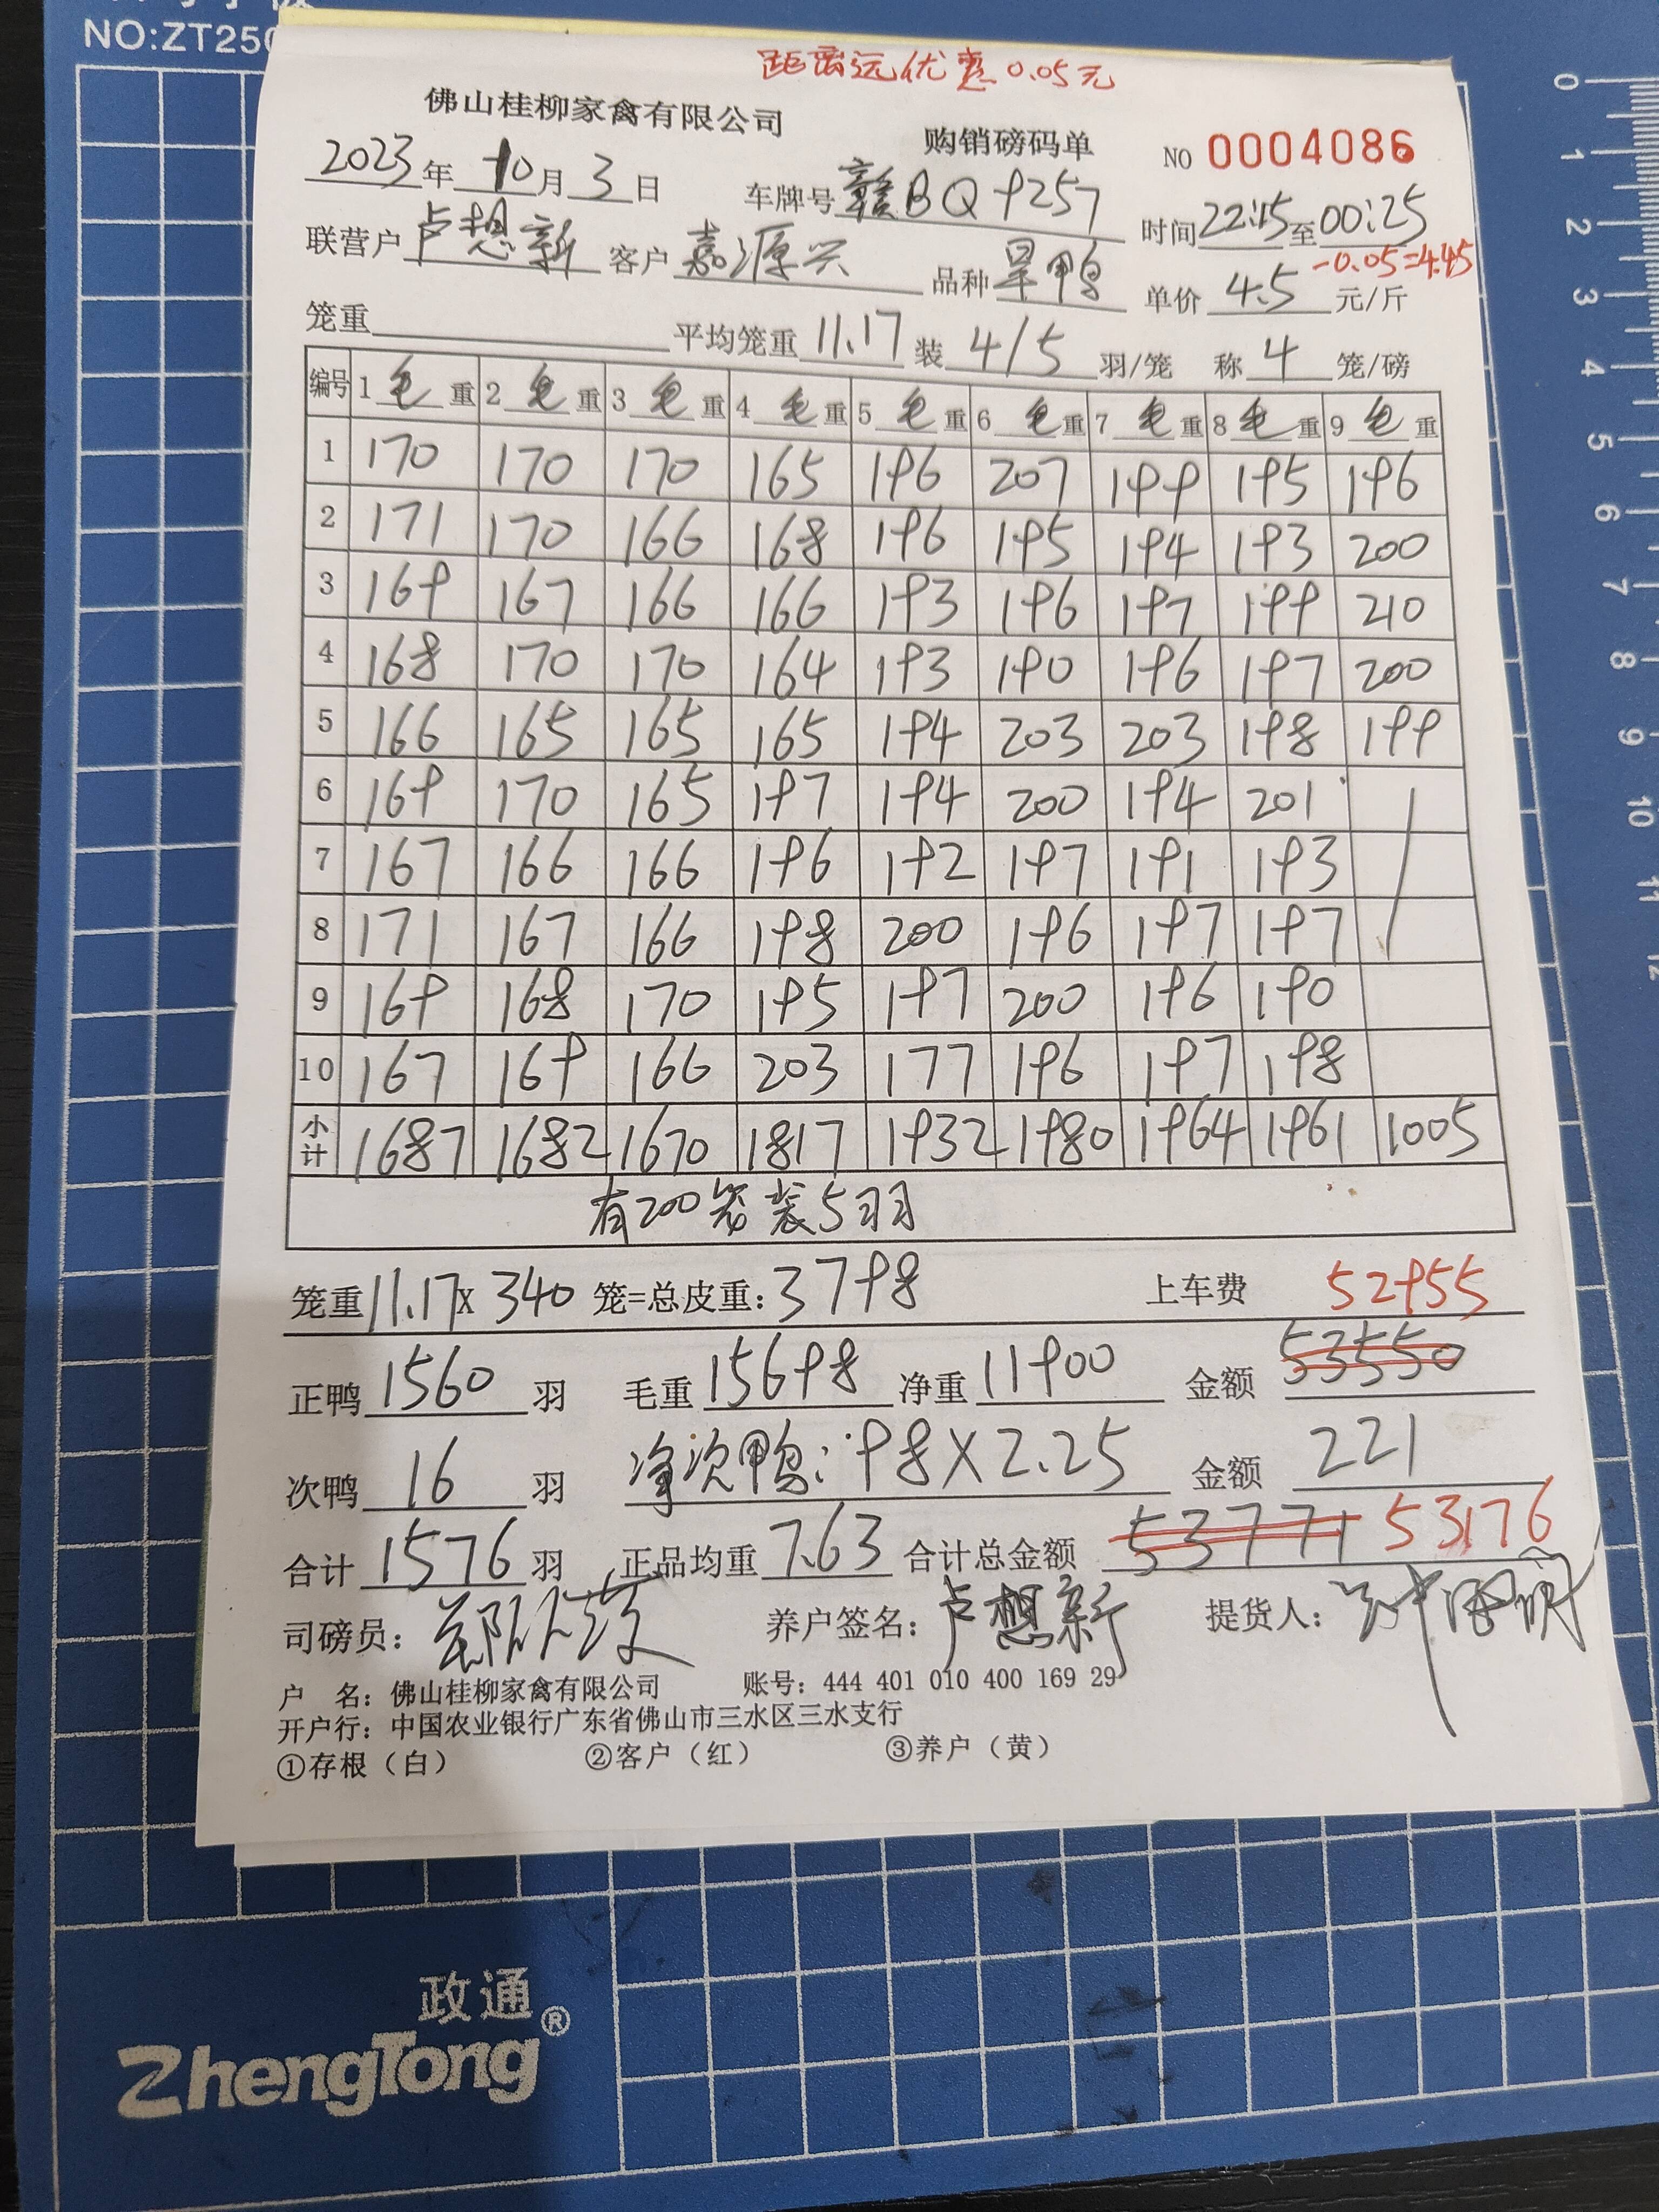 NO:ZT250
距离远优惠0.05元
佛山桂柳家禽有限公司 购销磅码单 NO 0004086
2023年10月3日 车牌号赣BQ9257 时间22:15至00:25
联营户卢想新 客户嘉源兴 品种旱鸭 单价4.5元/斤 -0.05=4.45
笼重 平均笼重11.17 装4/5羽/笼 称4笼/磅
编号 1毛重 2毛重 3毛重 4毛重 5毛重 6毛重 7毛重 8毛重 9毛重
1 170 170 170 165 196 207 199 195 196
2 171 170 166 168 196 195 194 193 200
3 169 167 166 166 193 196 197 199 210
4 168 170 170 164 193 190 196 197 200
5 166 165 165 165 194 203 203 198 199
6 169 170 165 197 194 200 194 201
7 167 166 166 196 192 197 191 193
8 171 167 166 198 200 196 197 197
9 169 168 170 195 197 200 196 190
10 167 169 166 203 177 196 197 198
小计 1687 1682 1670 1817 1932 1980 1964 1961 1005
有200笼装5羽
笼重11.17X340笼=总皮重:3798 上车费 52955
正鸭1560羽 毛重15698 净重11900 金额53550
次鸭16羽 净次鸭:98X2.25 金额221
合计1576羽 正品均重7.63 合计总金额53771 53176
司磅员: 养户签名:卢想新 提货人:
户 名:佛山桂柳家禽有限公司 账号:444 401 010 400 169 29
开户行:中国农业银行广东省佛山市三水区三水支行
①存根(白) ②客户(红) ③养户(黄)
0
1
2
3
4
5
6
7
8
9
10
11
12
政通
ZhengTong®